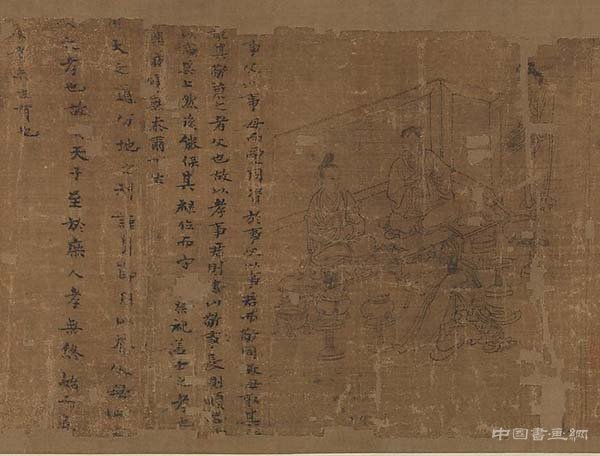 事父以事母而愛同資於事父以事君而敬同故母取其
取其敬兼之者父也故以孝事君則忠以敬事長則順忠
以事其上然後能保其祿位而守 祭祀蓋士之孝也
興夜寐無忝爾所
天之道分地之利謹身節用以養父母此
人之孝也故 天子至於庶人孝無終始而患
者未之有也
中国書画網